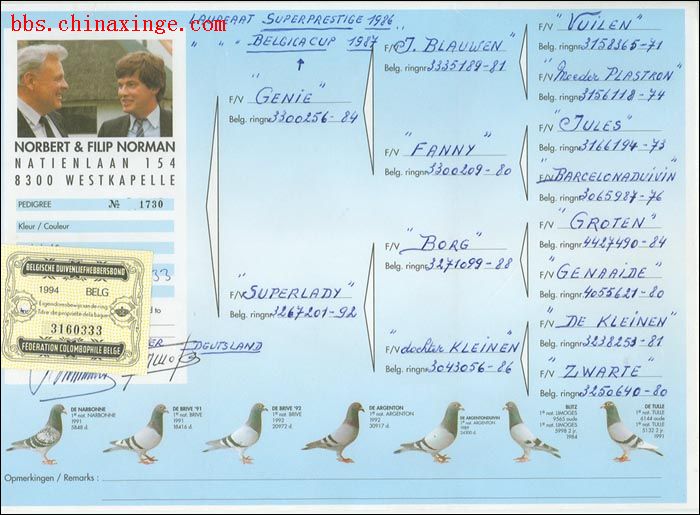 bbs.chinaxinge.com
LAUREAAT SUPERPRESTIGE 1986
" " BELGICA CUP 1987
NORBERT & FILIP NORMAN
NATIENLAAN 154
8300 WESTKAPELLE
PEDIGREE № 1730
Kleur / Couleur
33
BELGISCHE DUIVENLIEFHEBBERSBOND
1994 BELG
Eigendomsbewijs van de ring
Titre de propriété de la bague
3160333
FEDERATION COLOMBOPHILE BELGE
DEUTSLAND
F/V "GENIE"
Belg. ringnr. 3300256-84
F/V "SUPERLADY"
Belg. ringnr. 3267201-92
F/V "J. BLAUWEN"
Belg. ringnr. 3335189-81
F/V "FANNY"
Belg. ringnr. 3300209-80
F/V "BORG"
Belg. ringnr. 3271099-88
F/V "dochter KLEINEN"
Belg. ringnr. 3043056-86
F/V "VUILEN"
Belg. ringnr. 3158365-71
F/V "Moeder PLASTRON"
Belg. ringnr. 3156118-74
F/V "JULES"
Belg. ringnr. 3166194-73
F/V "BARCELONADUIVIN"
Belg. ringnr. 3065987-76
F/V "GROTEN"
Belg. ringnr. 4427490-84
F/V "GENAAIDE"
Belg. ringnr. 4055621-80
F/V "DE KLEINEN"
Belg. ringnr. 3238253-81
F/V "ZWARTE"
Belg. ringnr. 3250640-80
DE NARBONNE
1º nat. NARBONNE
1991
5848 d.
DE BRIVE '91
1º nat. BRIVE
1991
18416 d.
DE BRIVE '92
1º nat. BRIVE
1992
20972 d.
DE ARGENTON
1º nat. ARGENTON
1992
30917 d.
DE ARGENTONDUIVIN
1º nat. ARGENTON
1989
24300 d.
BLITZ
1º nat. LIMOGES
9565 oude
1º nat. LIMOGES
5998 2 jr.
1984
DE TULLE
1º nat. TULLE
6144 oude
1º nat. TULLE
5132 2 jr.
1991
Opmerkingen / Remarks :